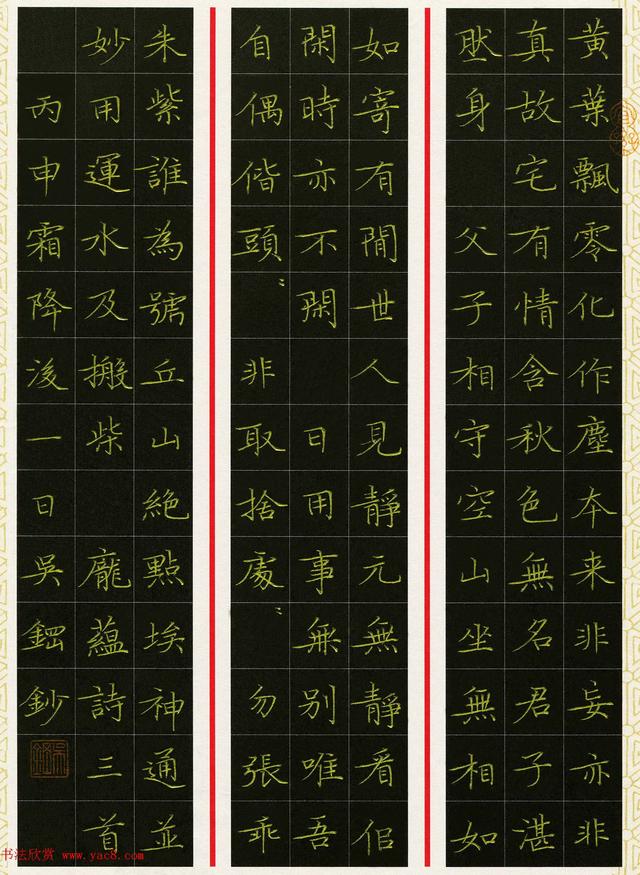 黃葉飄零化作塵本来非妄亦非
真故宅有情含秋色無名君子湛
然身 父子相守空山坐無相如
如寄有閒世人見靜元無靜看佀
閑時亦不閑 日用事無别唯吾
自偶偕頭〻非取捨處〻勿張乖
朱紫誰為號丘山絕點埃神通並
妙用運水及搬柴 龐蘊詩三首
丙申霜降後一日吳鋼鈔
吳鋼
书法欣赏 www.yac8.com